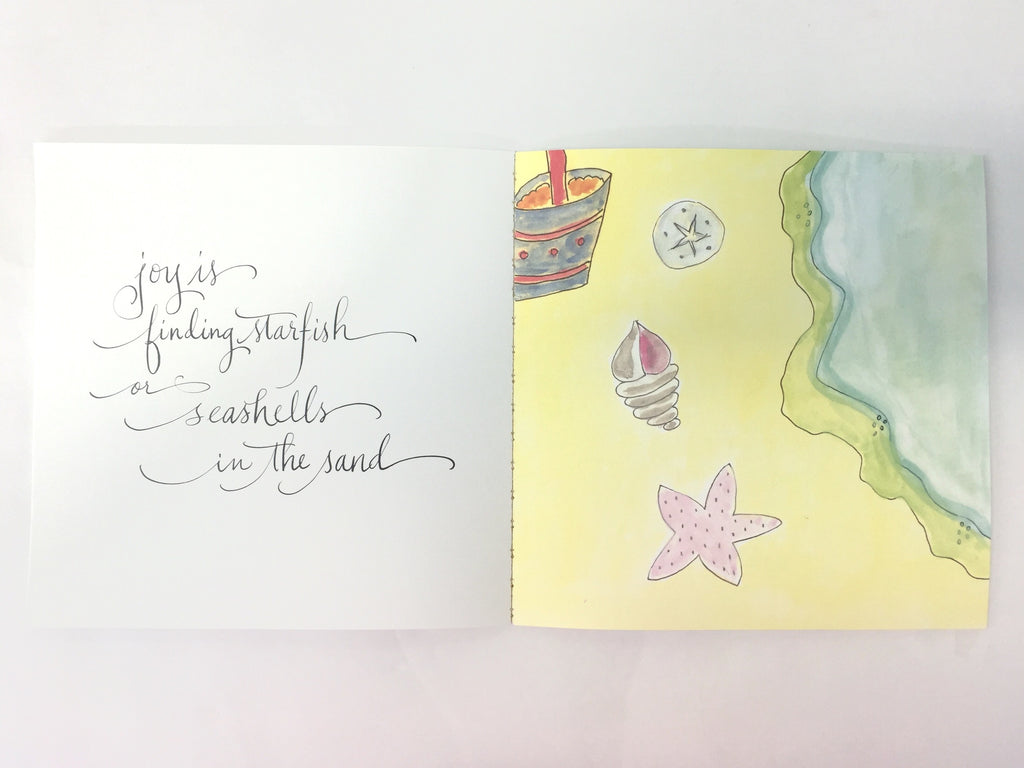 joy is
finding starfish
or
seashells
in the sand